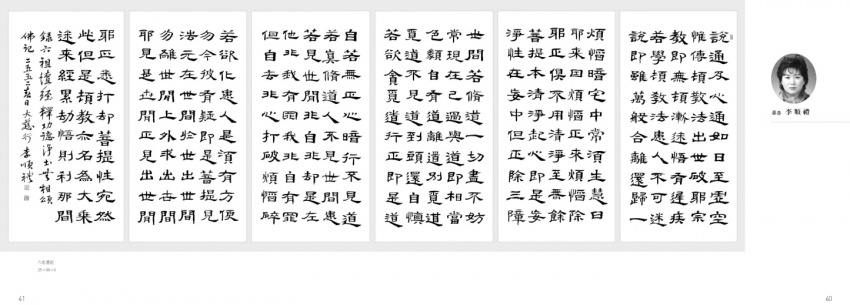 說通及心通如日至虛空
惟傳頓教法出世破邪宗
教即無頓漸迷悟有遲疾
若學頓教法愚人不可迷
說即雖萬般合離還歸一
煩惱暗宅中常須生慧日
邪來因煩惱正來煩惱除
邪正俱不用清淨至無餘
菩提本清淨起心即是妄
淨性在妄中但正除三障
世間若修道一切盡不妨
常現在己過與道即相當
色類自有道離道別覓道
覓道不見道到頭還自懊
若欲貪覓道行正即是道
自若無正心暗行不見道
若真修道人不見世間愚
若見世間非自非却是左
他非我有罪我非自有罪
但自去非心打破煩惱碎
若欲化愚人是須有方便
勿令彼有疑即是菩提見
法元在世間於世出世間
勿離世間上外求出世間
邪見是世間正見出世間
邪正悉打却菩提性宛然
此但是頓教亦名為大乘
迷來經累劫悟則刹那間
錄六祖壇經 釋功德淨土 無相頌
佛記二五五二夏日 大慈行 李順禮
李順禮
61
60